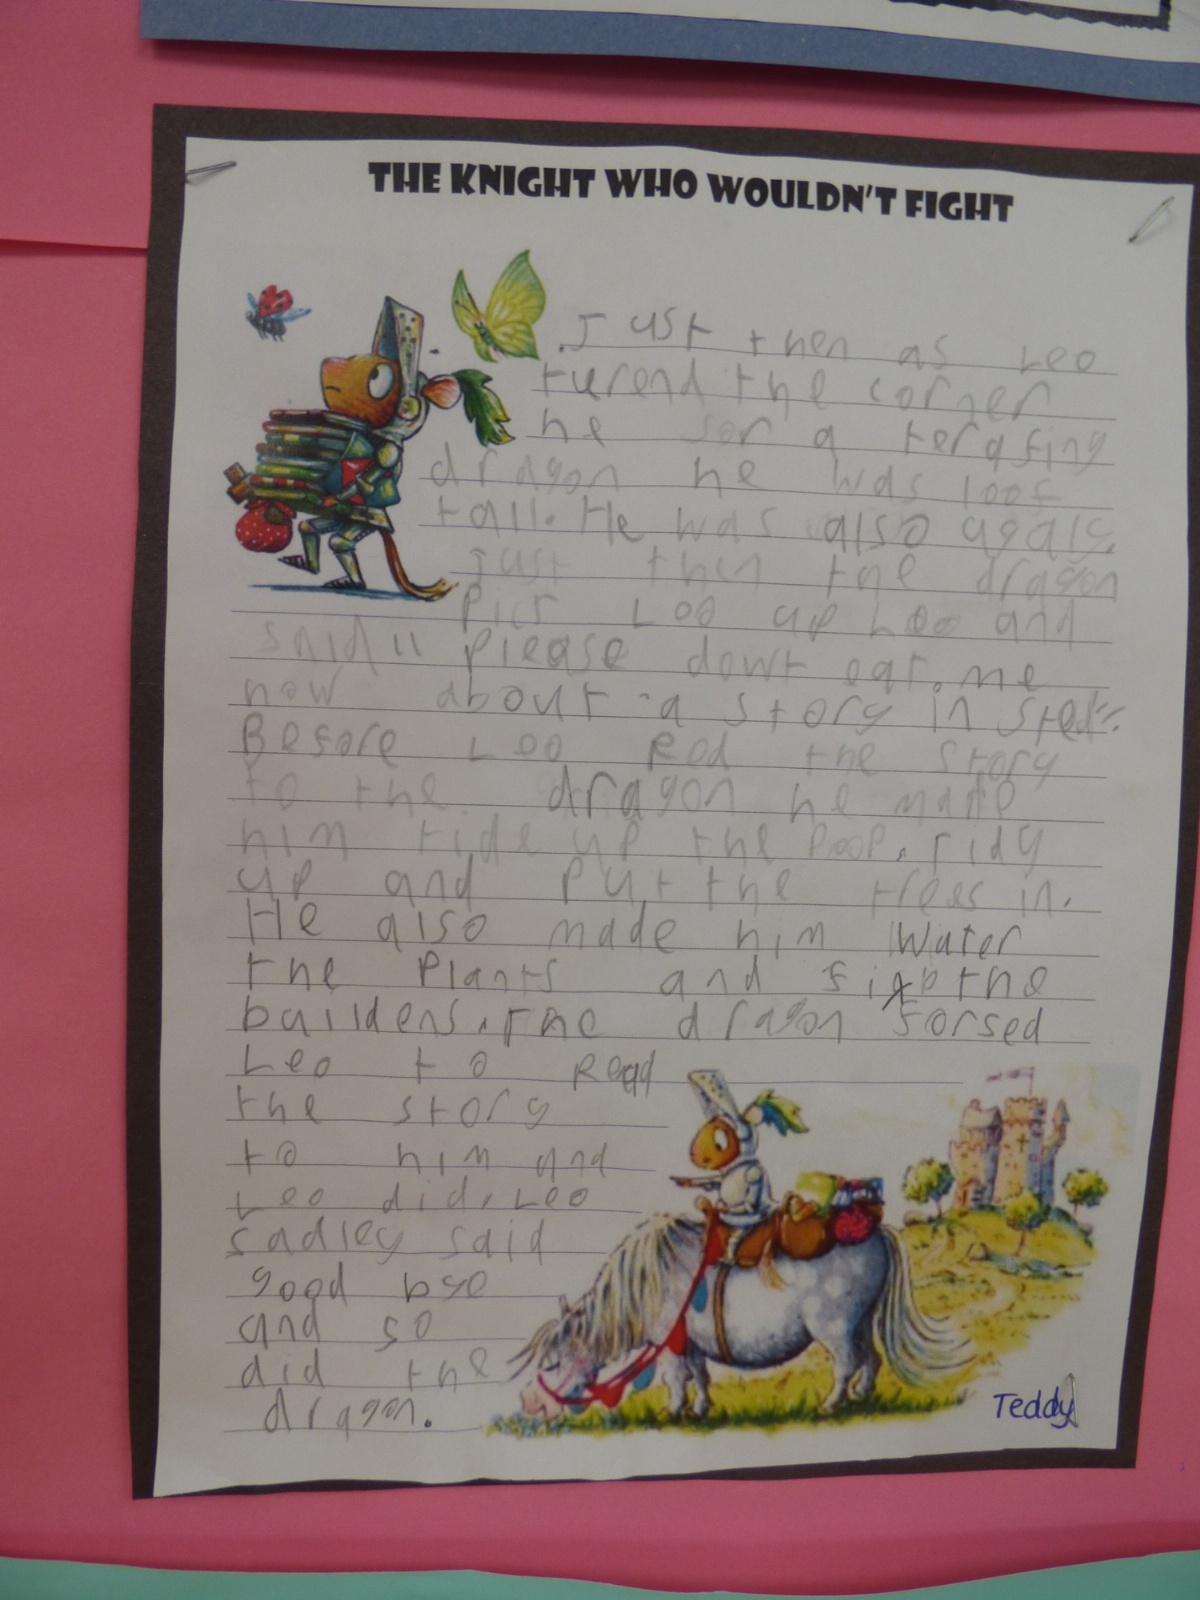 THE KNIGHT WHO WOULDN'T FIGHT
Just then as Leo
turend the corner
he sor a terafing
dragon he was 100f
tall. He was also ugaly.
Just then the dragon
Pict Leo up Leo and
said " Please dowt eat. me
how about a story in sted".
Before Leo Red the story
to the dragon he made
him tide up the poop. tidy
up and put the trees in.
He also made him Water
the Plants and fix the
buildens. The dragon forsed
Leo to Read
the story
to him and
Leo did. Leo
sadley said
good bye
and so
did the
dragon.
Teddy